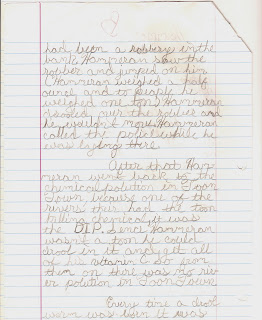 had been a robbery in the
bank. Hammeran saw the
robber and jumped on him
(Hammeran weighed a half
ounce and to people he
weighed one ton) Hammeran
drooled over the robber and
he wouldn't move. Hammeran
called the police while he
was laying there.
After that Ham
meran went back to the
chemical polution in Toon
Town because one of the
rivers their had the toon
killing chemical, it was
the DIP. Sence Hammeran
wasn't a toon he could
drool in it and it all
of his vitamin C so from
them on there was no riv
er polution in Toon Town
Every time a drool
worm was born it was